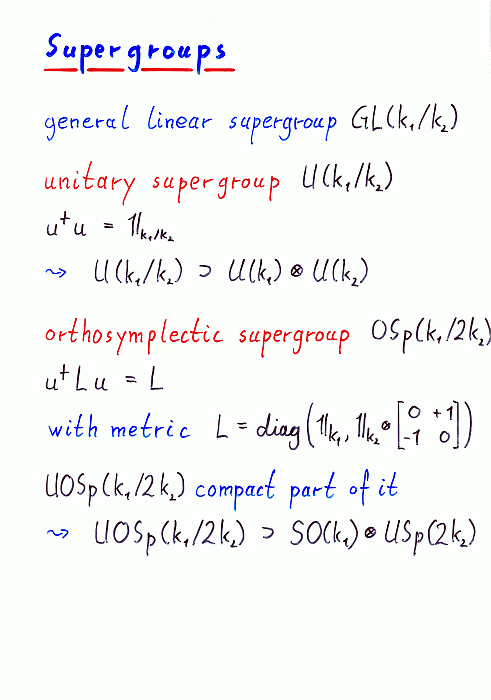 Supergroups
general linear supergroup GL(k₁/k₂)
unitary supergroup U(k₁/k₂)
u⁺u = 𝟙ₖ₁/ₖ₂
⇝ U(k₁/k₂) ⊃ U(k₁) ⊗ U(k₂)
orthosymplectic supergroup OSp(k₁/2k₂)
u⁺Lu = L
with metric L = diag(𝟙ₖ₁, 𝟙ₖ₂ ⊗ [0 +1
-1 0])
UOSp(k₁/2k₂) compact part of it
⇝ UOSp(k₁/2k₂) ⊃ SO(k₁) ⊗ USp(2k₂)